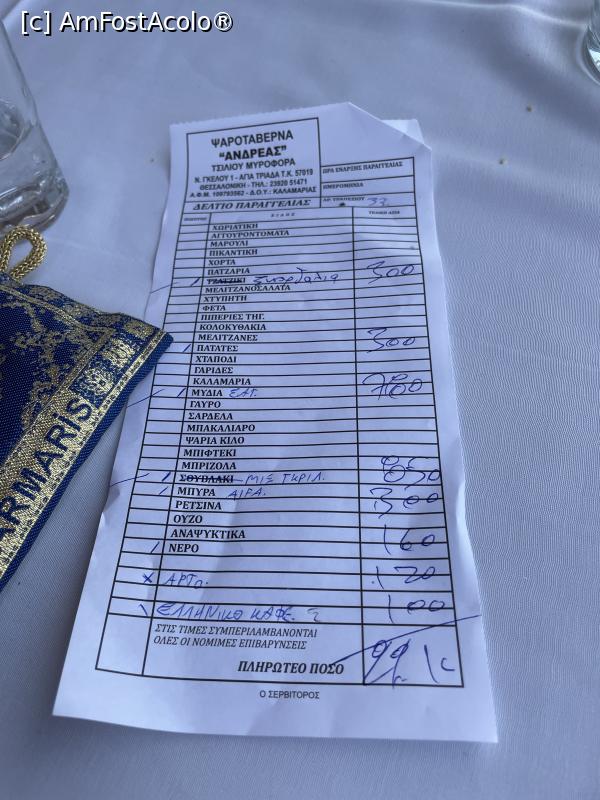 [c] AmFostAcolo®
ΨΑΡΟΤΑΒΕΡΝΑ
"ΑΝΔΡΕΑΣ"
ΤΣΙΛΙΟΥ ΜΥΡΟΦΟΡΑ
Ν. ΓΚΕΛΟΥ 1 - ΑΓΙΑ ΤΡΙΑΔΑ Τ.Κ. 57019
ΘΕΣΣΑΛΟΝΙΚΗ - ΤΗΛ.: 23920 51471
Α.Φ.Μ. 109793562 - Δ.Ο.Υ.: ΚΑΛΑΜΑΡΙΑΣ
ΔΕΛΤΙΟ ΠΑΡΑΓΓΕΛΙΑΣ
ΩΡΑ ΕΝΑΡΞΗΣ ΠΑΡΑΓΓΕΛΙΑΣ
ΗΜΕΡΟΜΗΝΙΑ
ΑΡ. ΤΡΑΠΕΖΙΟΥ 33
ΕΙΔΟΣ
ΧΩΡΙΑΤΙΚΗ
ΑΓΓΟΥΡΟΝΤΟΜΑΤΑ
ΜΑΡΟΥΛΙ
ΠΙΚΑΝΤΙΚΗ
ΧΟΡΤΑ
ΠΑΤΖΑΡΙΑ
ΤΖΑΤΖΙΚΙ σκορδαλια 300
ΜΕΛΙΤΖΑΝΟΣΑΛΑΤΑ
ΧΤΥΠΗΤΗ
ΦΕΤΑ
ΠΙΠΕΡΙΕΣ ΤΗΓ.
ΚΟΛΟΚΥΘΑΚΙΑ
ΜΕΛΙΤΖΑΝΕΣ
ΠΑΤΑΤΕΣ 300
ΧΤΑΠΟΔΙ
ΓΑΡΙΔΕΣ
ΚΑΛΑΜΑΡΙΑ
ΜΥΔΙΑ ΣΑΓ. 780
ΓΑΥΡΟ
ΣΑΡΔΕΛΑ
ΜΠΑΚΑΛΙΑΡΟ
ΨΑΡΙΑ ΚΙΛΟ
ΜΠΙΦΤΕΚΙ
ΜΠΡΙΖΟΛΑ
ΣΟΥΒΛΑΚΙ ΜΙΞ ΓΚΡΙΛ. 850
ΜΠΥΡΑ 300
ΡΕΤΣΙΝΑ
ΟΥΖΟ
ΑΝΑΨΥΚΤΙΚΑ
ΝΕΡΟ 160
ΑΡΤο. 120
ΕΛΛΗΝΙΚΟ ΚΑΦΕ. 100
ΣΤΙΣ ΤΙΜΕΣ ΣΥΜΠΕΡΙΛΑΜΒΑΝΟΝΤΑΙ
ΟΛΕΣ ΟΙ ΝΟΜΙΜΕΣ ΕΠΙΒΑΡΥΝΣΕΙΣ
ΠΛΗΡΩΤΕΟ ΠΟΣΟ
Ο ΣΕΡΒΙΤΟΡΟΣ
ARMARiS